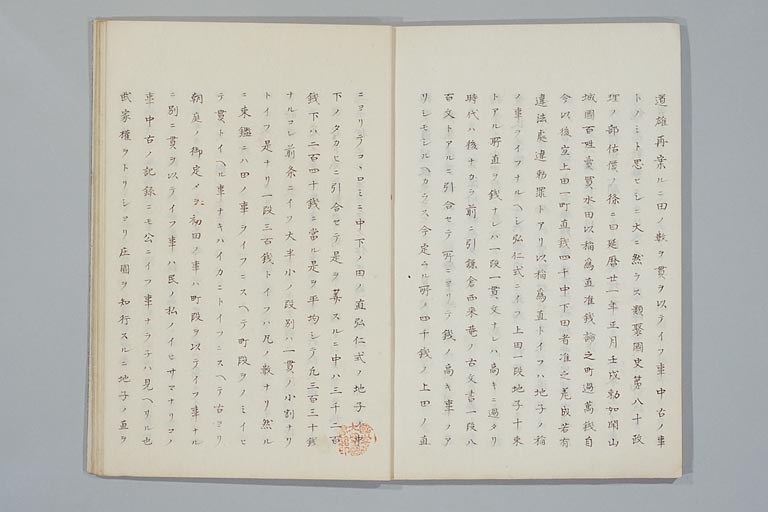 道雄再案ルニ田ノ数ヲ貫ヲ以テイフ事中古ノ事
トノミト思ヒシニ大ニ然ラス類聚國史第八十政
理ノ部估價ノ條ニ曰延暦廿一年正月壬戌勅如聞山
城國百姓賣買水田以稲為直准錢論之町過萬錢自
今以後立上田一町直錢四千中下田者准之為改若有
違法處違勅罪トアリ以稲為直トイフハ地子ノ稲
ノ事ヲイフナルヘシ弘仁式ニイフ上田一段地子十束
トアル所直ヲ錢ナレハ一段一貫文ナレハ高キニ過タリ
時代ハ後ナカラ前ニ引鎌倉西来菴ノ古文書一段八
百文トアルニ引合セテ所ニヨリテ錢ノ高キ事ノア
リシモシルヘカラス今定ムル所ノ四千錢ノ上田ノ直
ニヨリテコヽロミニ中下ノ田ノ直弘仁式ノ地子ノ中
下ノタカヒニ引合セテ是ヲ葉スルニ中ハ三千二百
錢下ハ二百四十錢ニ當ル是ヲ平均シテ凡三百三十錢
ナルコレ前条ニイフ大半小ノ段別ハ一貫ノ小割ナリ
トイフ是ナリ一段三百錢トイフハ凡ノ数ナリ然ル
ニ東鑑ニハ田ノ事ヲイフニスヘテ町段ヲノミイヒ
テ貫トイヘル事ナキハイカニトイフニスヘテ古ヨリ
朝庭ノ御定メニ初田ノ事ハ町段ヲ以テイフ事ナル
ニ別ニ貫ヲ以テイフ事ハ民ノ私ノイヒサマナリコノ
事中古ノ記録ニモ公ニイフ事ナラテハ見ヘサル也
武家權ヲトリシヨリ庄園ヲ知行スルニ地子ノ直ヲ